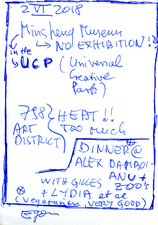 2 VI 2018
Minsheng Museum
→ NO EXHIBITION!
in the
UCP (Universal
Creative
Park)
798
ART
DISTRICT
HEAT!!
TOO much
DINNER @
ALEX DAMBOI-
ANU +
ZOO's
WITH GILLES
+ LYDIA et al
(Vegetarian, VERY GOOD)